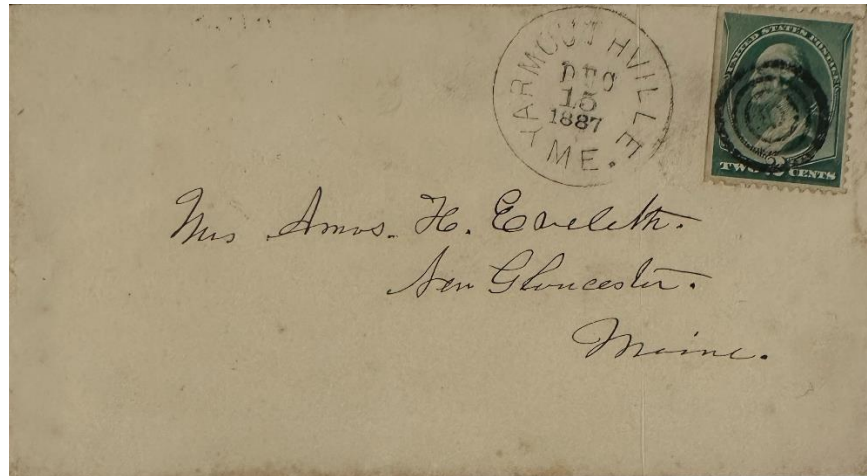 YARMOUTHVILLE
DEC
15
1887
ME.
UNITED STATES POSTAGE
TWO 2 CENTS
Mrs Amos. H. Eveleth.
New Gloucester.
Maine.